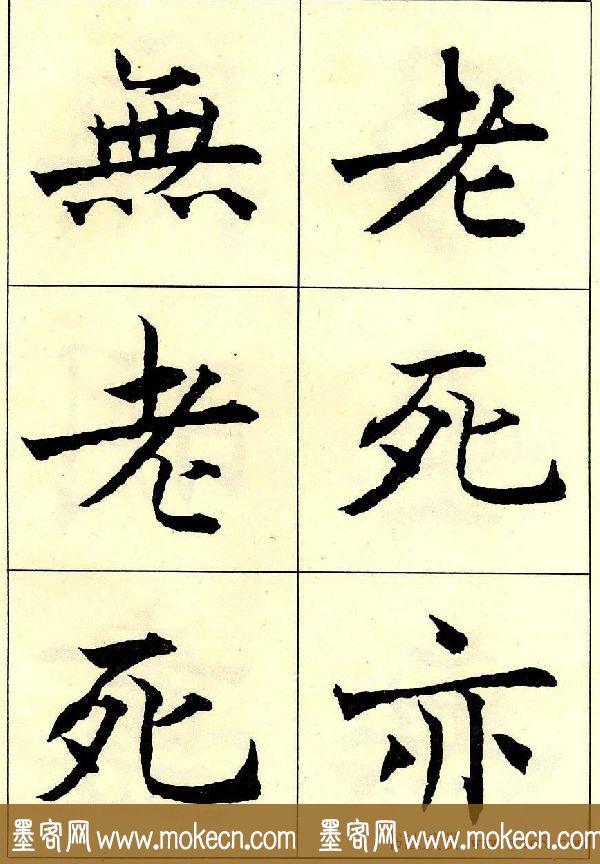 老死亦
無老死
墨客网 www.mokecn.com 墨客网 www.mokecn.com